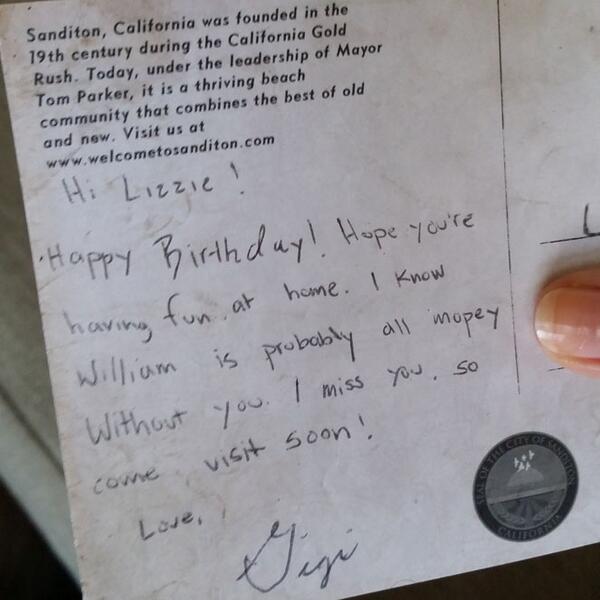 Sanditon, California was founded in the
19th century during the California Gold
Rush. Today, under the leadership of Mayor
Tom Parker, it is a thriving beach
community that combines the best of old
and new. Visit us at
www.welcometosanditon.com
Hi Lizzie!
Happy Birthday! Hope you're
having fun at home. I know
William is probably all mopey
without you. I miss you, so
come visit soon!
Love,
Gigi
SEAL OF THE CITY OF SANDITON
CALIFORNIA
L